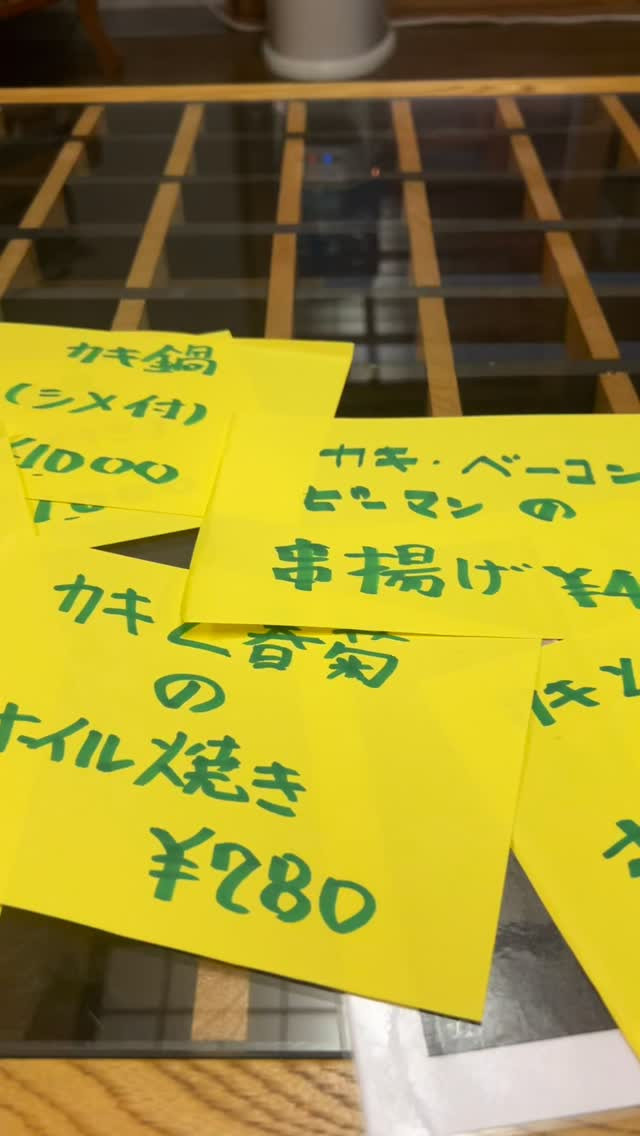 カキ鍋
(シメ付)
¥1000
カキ・ベーコン
ピーマンの
串揚げ ¥4
カキと春菊
の
オイル焼き
¥780